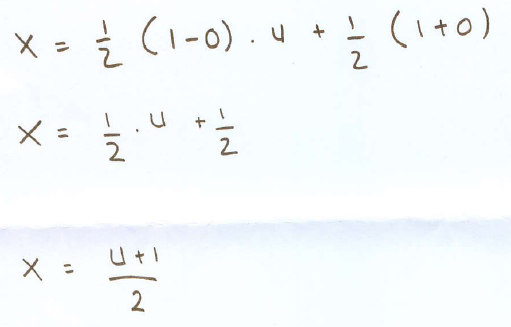 x = 1/2 (1-0) . u + 1/2 (1+0)
x = 1/2 . u + 1/2
x = u+1/2